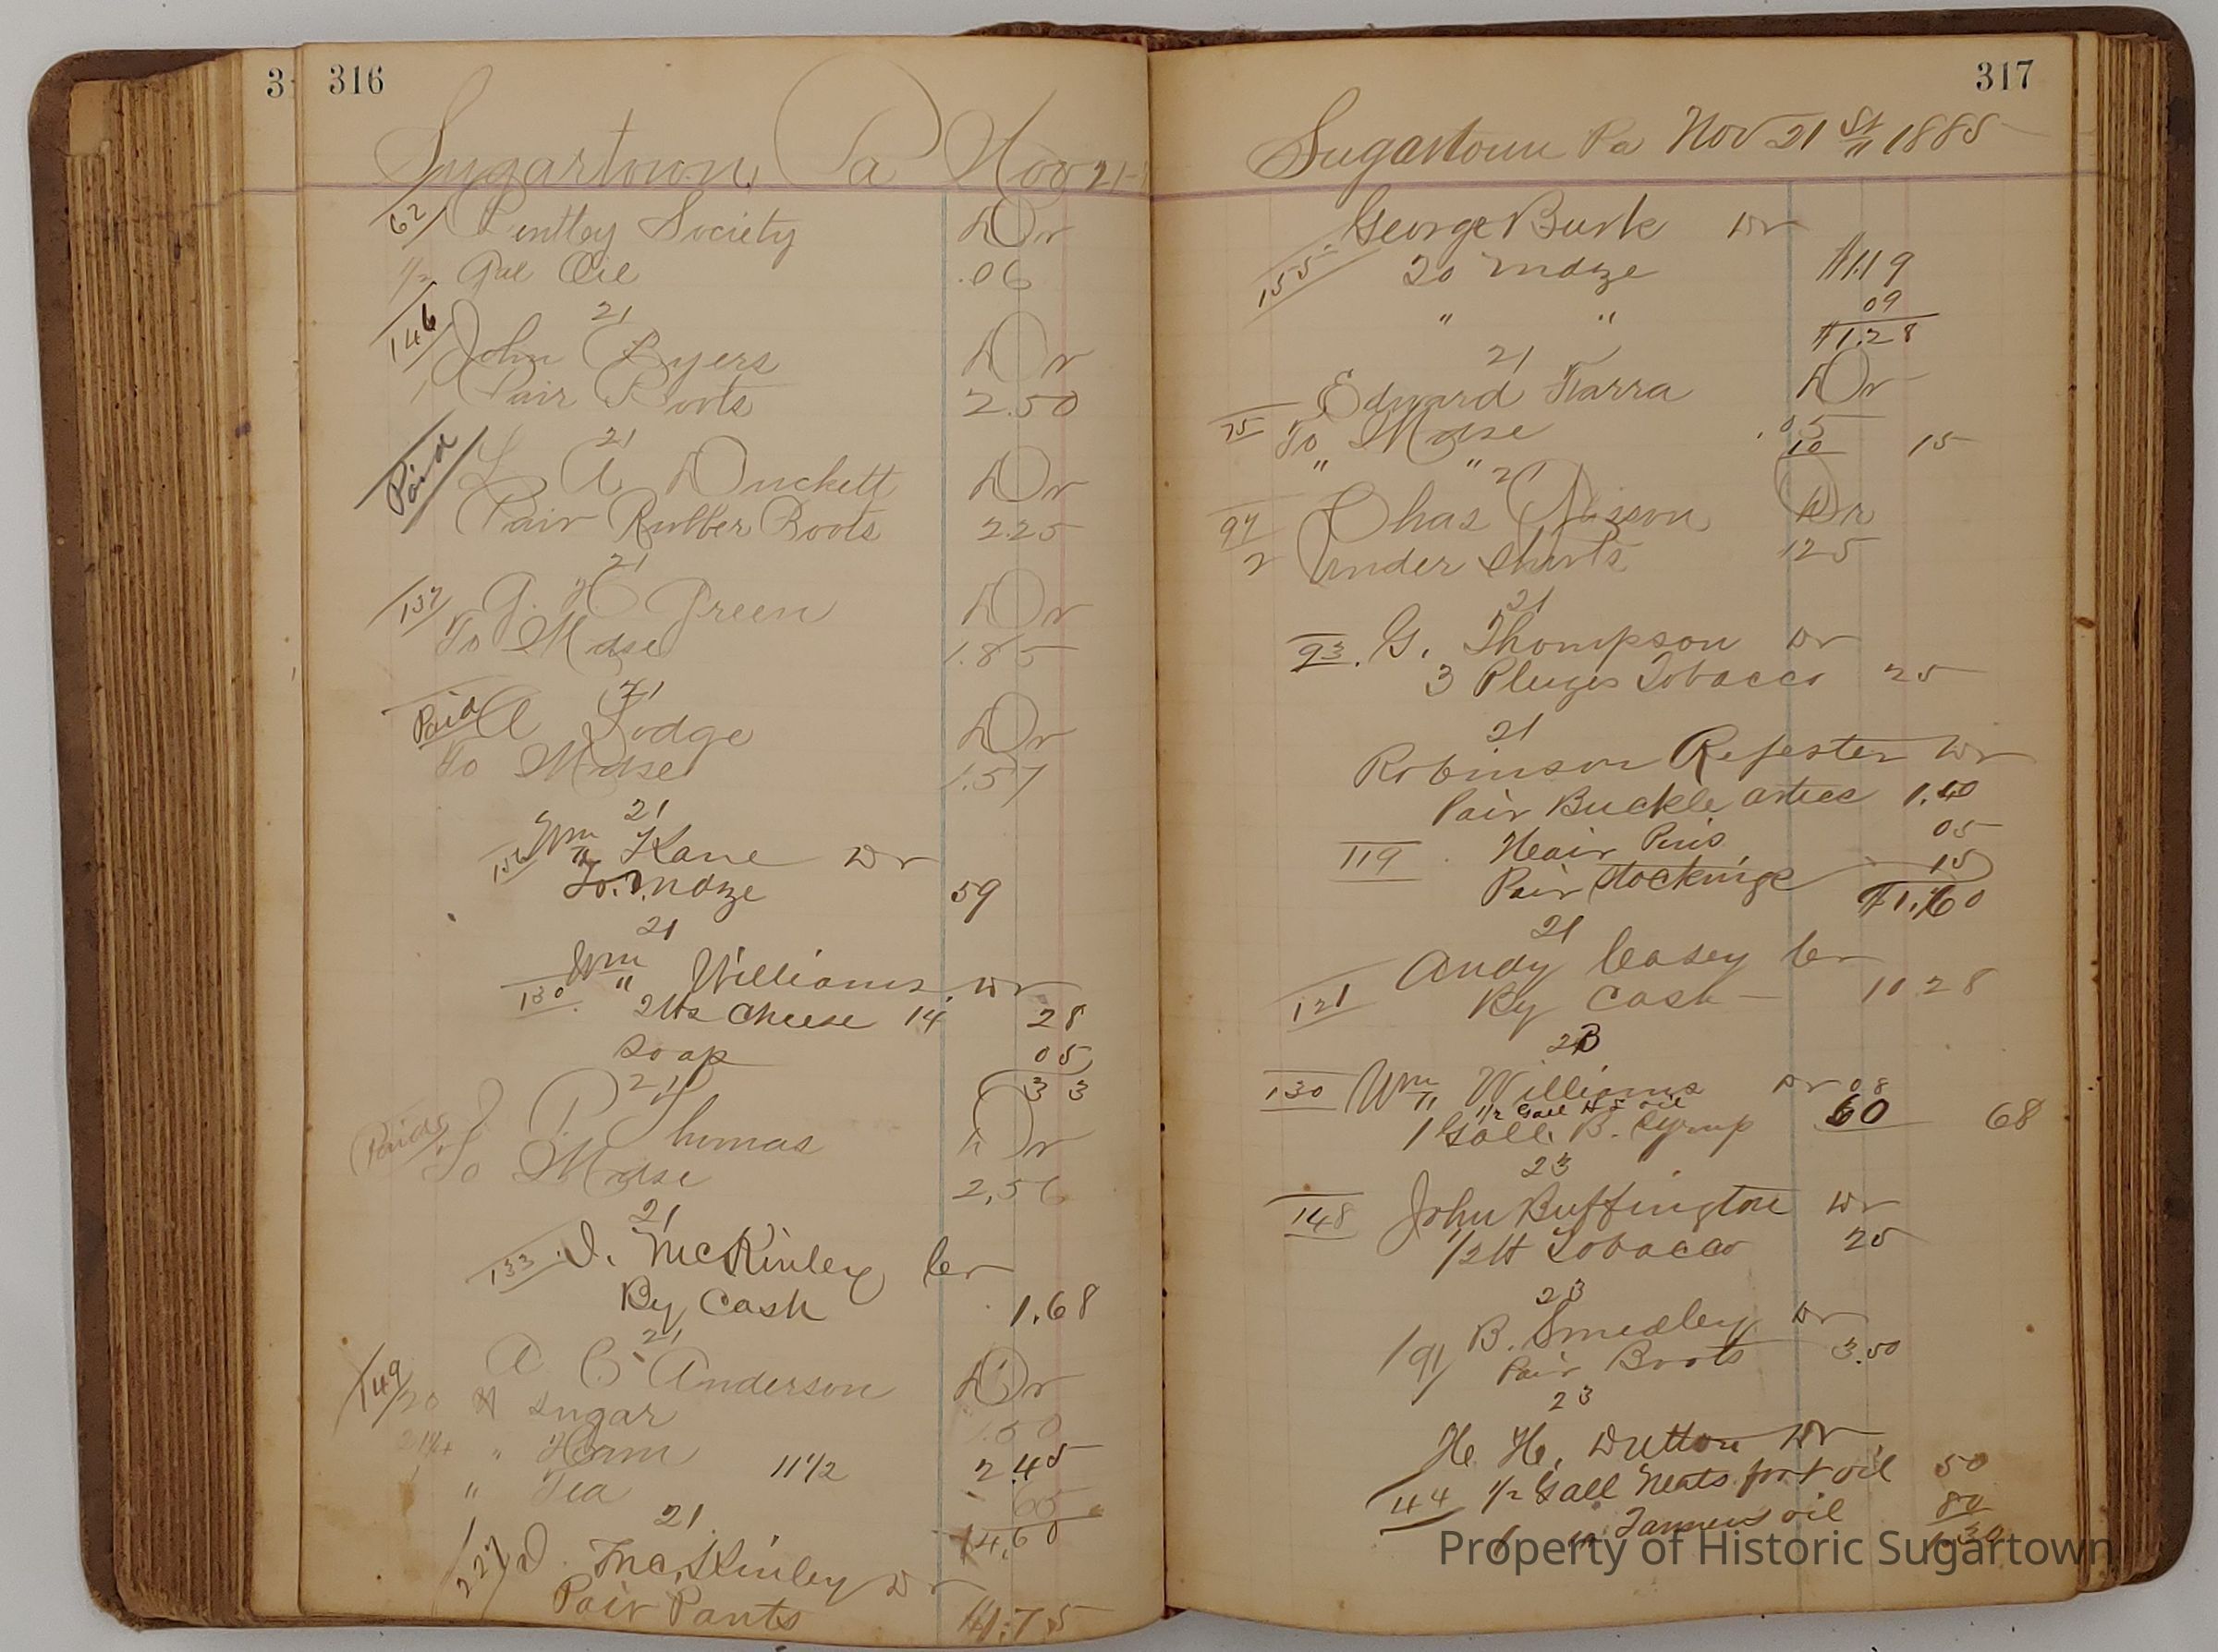 3
316
Sugartown, Pa Nov 21
62
Bentley Society Dr
1/2 Gal Oil .06
21
146
John Byers Dr
1 Pair Boots 2.50
21
Paid
L A Duckett Dr
Pair Rubber Boots 2.25
21
137
G. H Green Dr
To Mdse 1.85
21
Paid
A Lodge Dr
To Mdse 1.57
21
156 Wm Kane Dr
To. Mdze 59
21
130 Wm Williams Dr
2 lbs Cheese 14 28
Soap 05
33
21
Paid
J. P Thomas Dr
To Mdse 2,56
21
133 J. McKinley Cr
By Cash 1.68
21
149
A C Anderson Dr
20 # Sugar 1.50
21 1/4 " Ham 11 1/2 2.45
1 " Tea 65
$4.60
21
227 J. McKinley Dr
Pair Pants $1.75
317
Sugartown Pa Nov 21 St 1885
George Burk Dr
155
To Mdze $1.19
" " 09
$1.28
21
Edward Farra Dr
75 To Mdse .05
" " 10 15
21
94 Chas Sisson Dr
2 Under Shirts 125
21
93. G. Thompson Dr
3 Pluges Tobacco 25
21
Robinson Dr
Pair Buckle artics 1.40
119 Hair Pins 05
Pair Stockings 15
$1.60
21
Andy Casey Cr
121 By Cash 10 28
23
130 Wm Williams Dr 08
1/2 Gall H L oil
1 Gall. B. Syrup 60 68
23
148 John Buffington Dr
1/2 lb Tobacco 25
23
191 B. Smedley Dr
Pair Boots 3.50
23
H. H. Dutton Dr
44 1/2 Gall Neats foot oil 50
Tanners oil 80
1.30
Property of Historic Sugartown